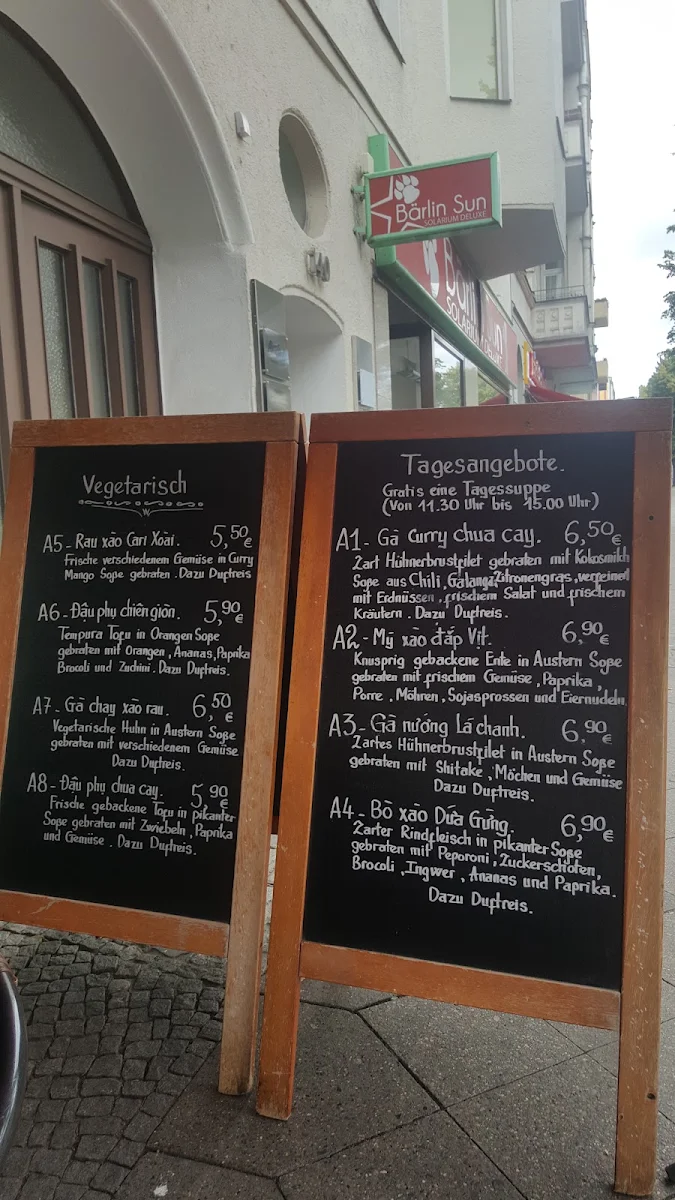 Bärlin Sun
SOLARIUM DELUXE
140
Vegetarisch
A5 - Rau xào Cari Xoài. 5,50 €
Frische verschiedenem Gemüse in Curry
Mango Soße gebraten. Dazu Duftreis
A6 - Đậu phụ chiên giòn. 5,90 €
Tempura Tofu in Orangen Soße
gebraten mit Orangen, Ananas, Paprika
Brocoli und Zuchini. Dazu Duftreis.
A7 - Gà chay xào rau. 6,50 €
Vegetarische Huhn in Austern Soße
gebraten mit verschiedenem Gemüse
Dazu Duftreis.
A8 - Đậu phụ chua cay. 5,90 €
Frische gebackene Tofu in pikanter
Soße gebraten mit Zwiebeln, Paprika
und Gemüse. Dazu Duftreis.
Tagesangebote.
Gratis eine Tagessuppe
(Von 11.30 Uhr bis 15.00 Uhr)
A1 - Gà Curry chua cay. 6,50 €
Zart Hühnerbrustfilet gebraten mit Kokosmilch
Soße aus Chili, Galanga, Zitronengras, verfeinet
mit Erdnüssen, frischem Salat und frischem
Kräutern. Dazu Duftreis.
A2 - Mỳ xào đắp Vịt. 6,90 €
Knusprig gebackene Ente in Austern Soße
gebraten mit frischem Gemüse, Paprika,
Porre, Möhren, Sojasprossen und Eiernudeln.
A3 - Gà nướng Lá chanh. 6,90 €
Zartes Hühnerbrustfilet in Austern Soße
gebraten mit Shitake, Möchen und Gemüse
Dazu Duftreis.
A4 - Bò xào Dứa Gừng. 6,90 €
Zarter Rindfleisch in pikanter Soße
gebraten mit Peporoni, Zuckerschoten,
Brocoli, Ingwer, Ananas und Paprika.
Dazu Duftreis.